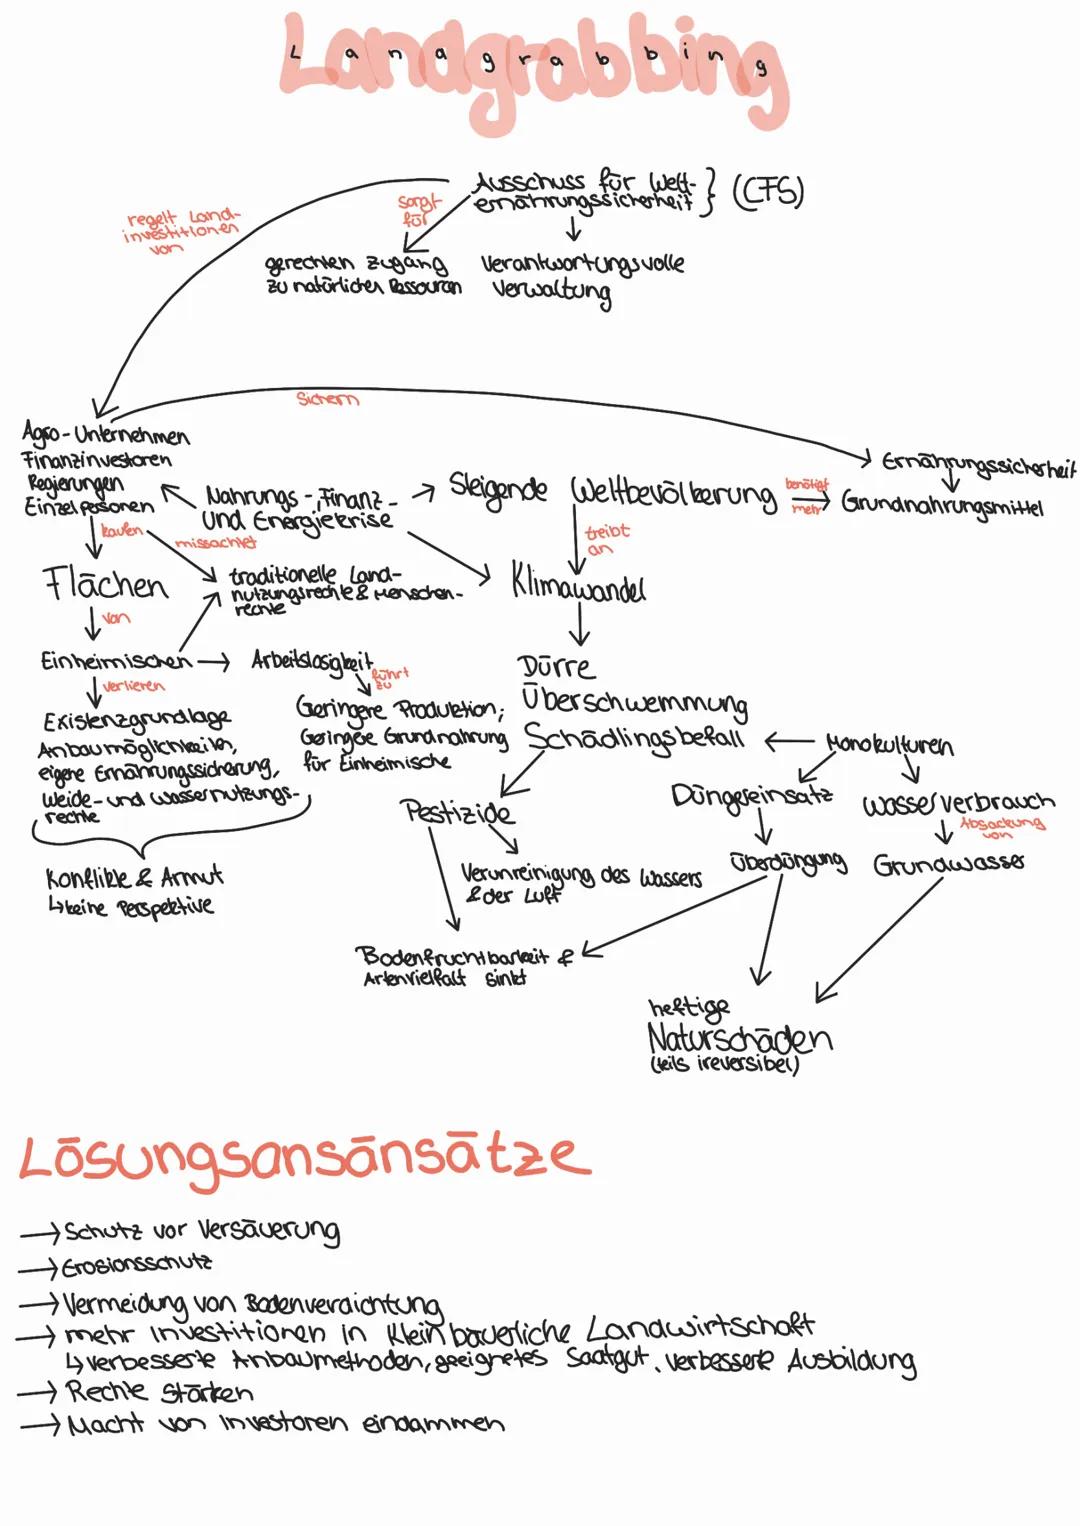 Landgrabbing
Ausschuss für Welt-
ernährungssicherheit } (CFS)
sorgt
für
regelt Land-
investitionen
von
gerechten Zugang
zu natürlichen Ressourcen
Verantwortungsvolle
Verwaltung
Sichern
Agro-Unternehmen
Finanzinvestoren
Regierungen
Einzelpersonen
Nahrungs-, Finanz-
und Energiekrise
Steigende Weltbevölkerung
benötigt
mehr
Ernährungssicherheit
Grundnahrungsmittel
kaufen
missachtet
treibt
an
Flächen
traditionelle Land-
nutzungsrechte & Menschen-
rechte
Klimawandel
von
Einheimischen
Arbeitslosigkeit
führt
zu
verlieren
Dürre
Überschwemmung
Schädlingsbefall
Monokulturen
Existenzgrundlage
Anbaumöglichkeiten,
eigene Ernährungssicherung,
Weide- und Wassernutzungs-
rechte
Geringere Produktion;
Geringere Grundnahrung
für Einheimische
Pestizide
Düngereinsatz
Wasserverbrauch
Absackung
von
Konflikte & Armut
↳ keine Perspektive
Verunreinigung des Wassers
& der Luft
Überdüngung
Grundwasser
Bodenfruchtbarkeit &
Artenvielfalt sinkt
heftige
Naturschäden
(teils ireversibel)
Lösungsansänsätze
→ Schutz vor Versäuerung
→ Erosionsschutz
→ Vermeidung von Bodenverdichtung
→ mehr Investitionen in Kleinbäuerliche Landwirtschaft
↳ verbesserte Anbaumethoden, geeignetes Saatgut, verbesserte Ausbildung
→ Rechte stärken
→ Macht von Investoren eindämmen